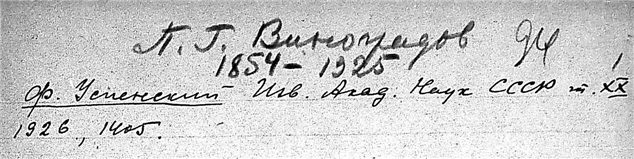 П. Г. Виноградов
1854 – 1925
Ф. Успенский Изв. Акад. Наук СССР т. XX
1926, 1405.